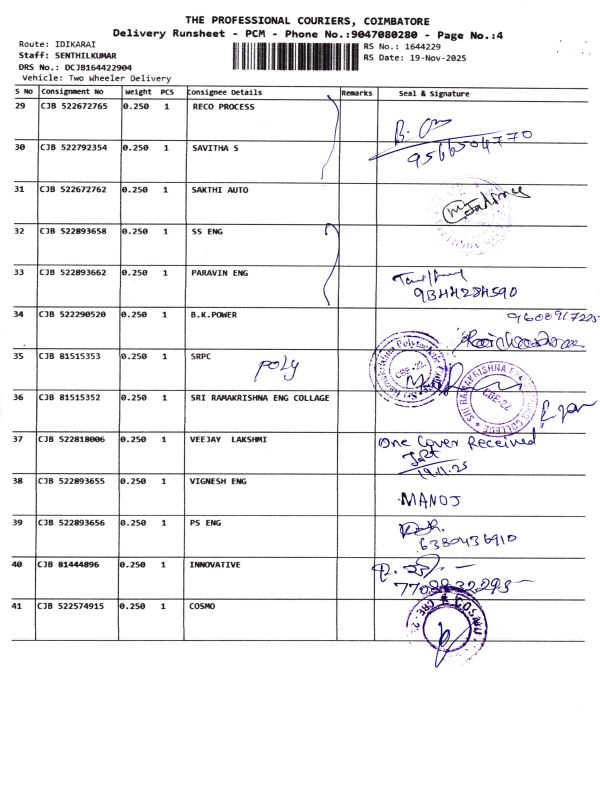 THE PROFESSIONAL COURIERS, COIMBATORE
Delivery Runsheet - PCM - Phone No.:9047080280 - Page No.:4
Route: IDIKARAI
RS No.: 1644229
Staff: SENTHILKUMAR
RS Date: 19-Nov-2025
DRS No.: DCJB164422904
Vehicle: Two Wheeler Delivery
S No Consignment No Weight PCS Consignee Details Remarks Seal & Signature
29 CJB 522672765 0.250 1 RECO PROCESS
30 CJB 522792354 0.250 1 SAVITHA S
9566504770
31 CJB 522672762 0.250 1 SAKTHI AUTO
32 CJB 522893658 0.250 1 SS ENG
33 CJB 522893662 0.250 1 PARAVIN ENG
9344284590
34 CJB 522290520 0.250 1 B.K.POWER
35 CJB 81515353 0.250 1 SRPC poly
CBE-22
36 CJB 81515352 0.250 1 SRI RAMAKRISHNA ENG COLLAGE
CBE-22
37 CJB 522818006 0.250 1 VEEJAY LAKSHMI One Cover Received
19.11.25
38 CJB 522893655 0.250 1 VIGNESH ENG MANOJ
39 CJB 522893656 0.250 1 PS ENG
6380436910
40 CJB 81444896 0.250 1 INNOVATIVE
41 CJB 522574915 0.250 1 COSMO